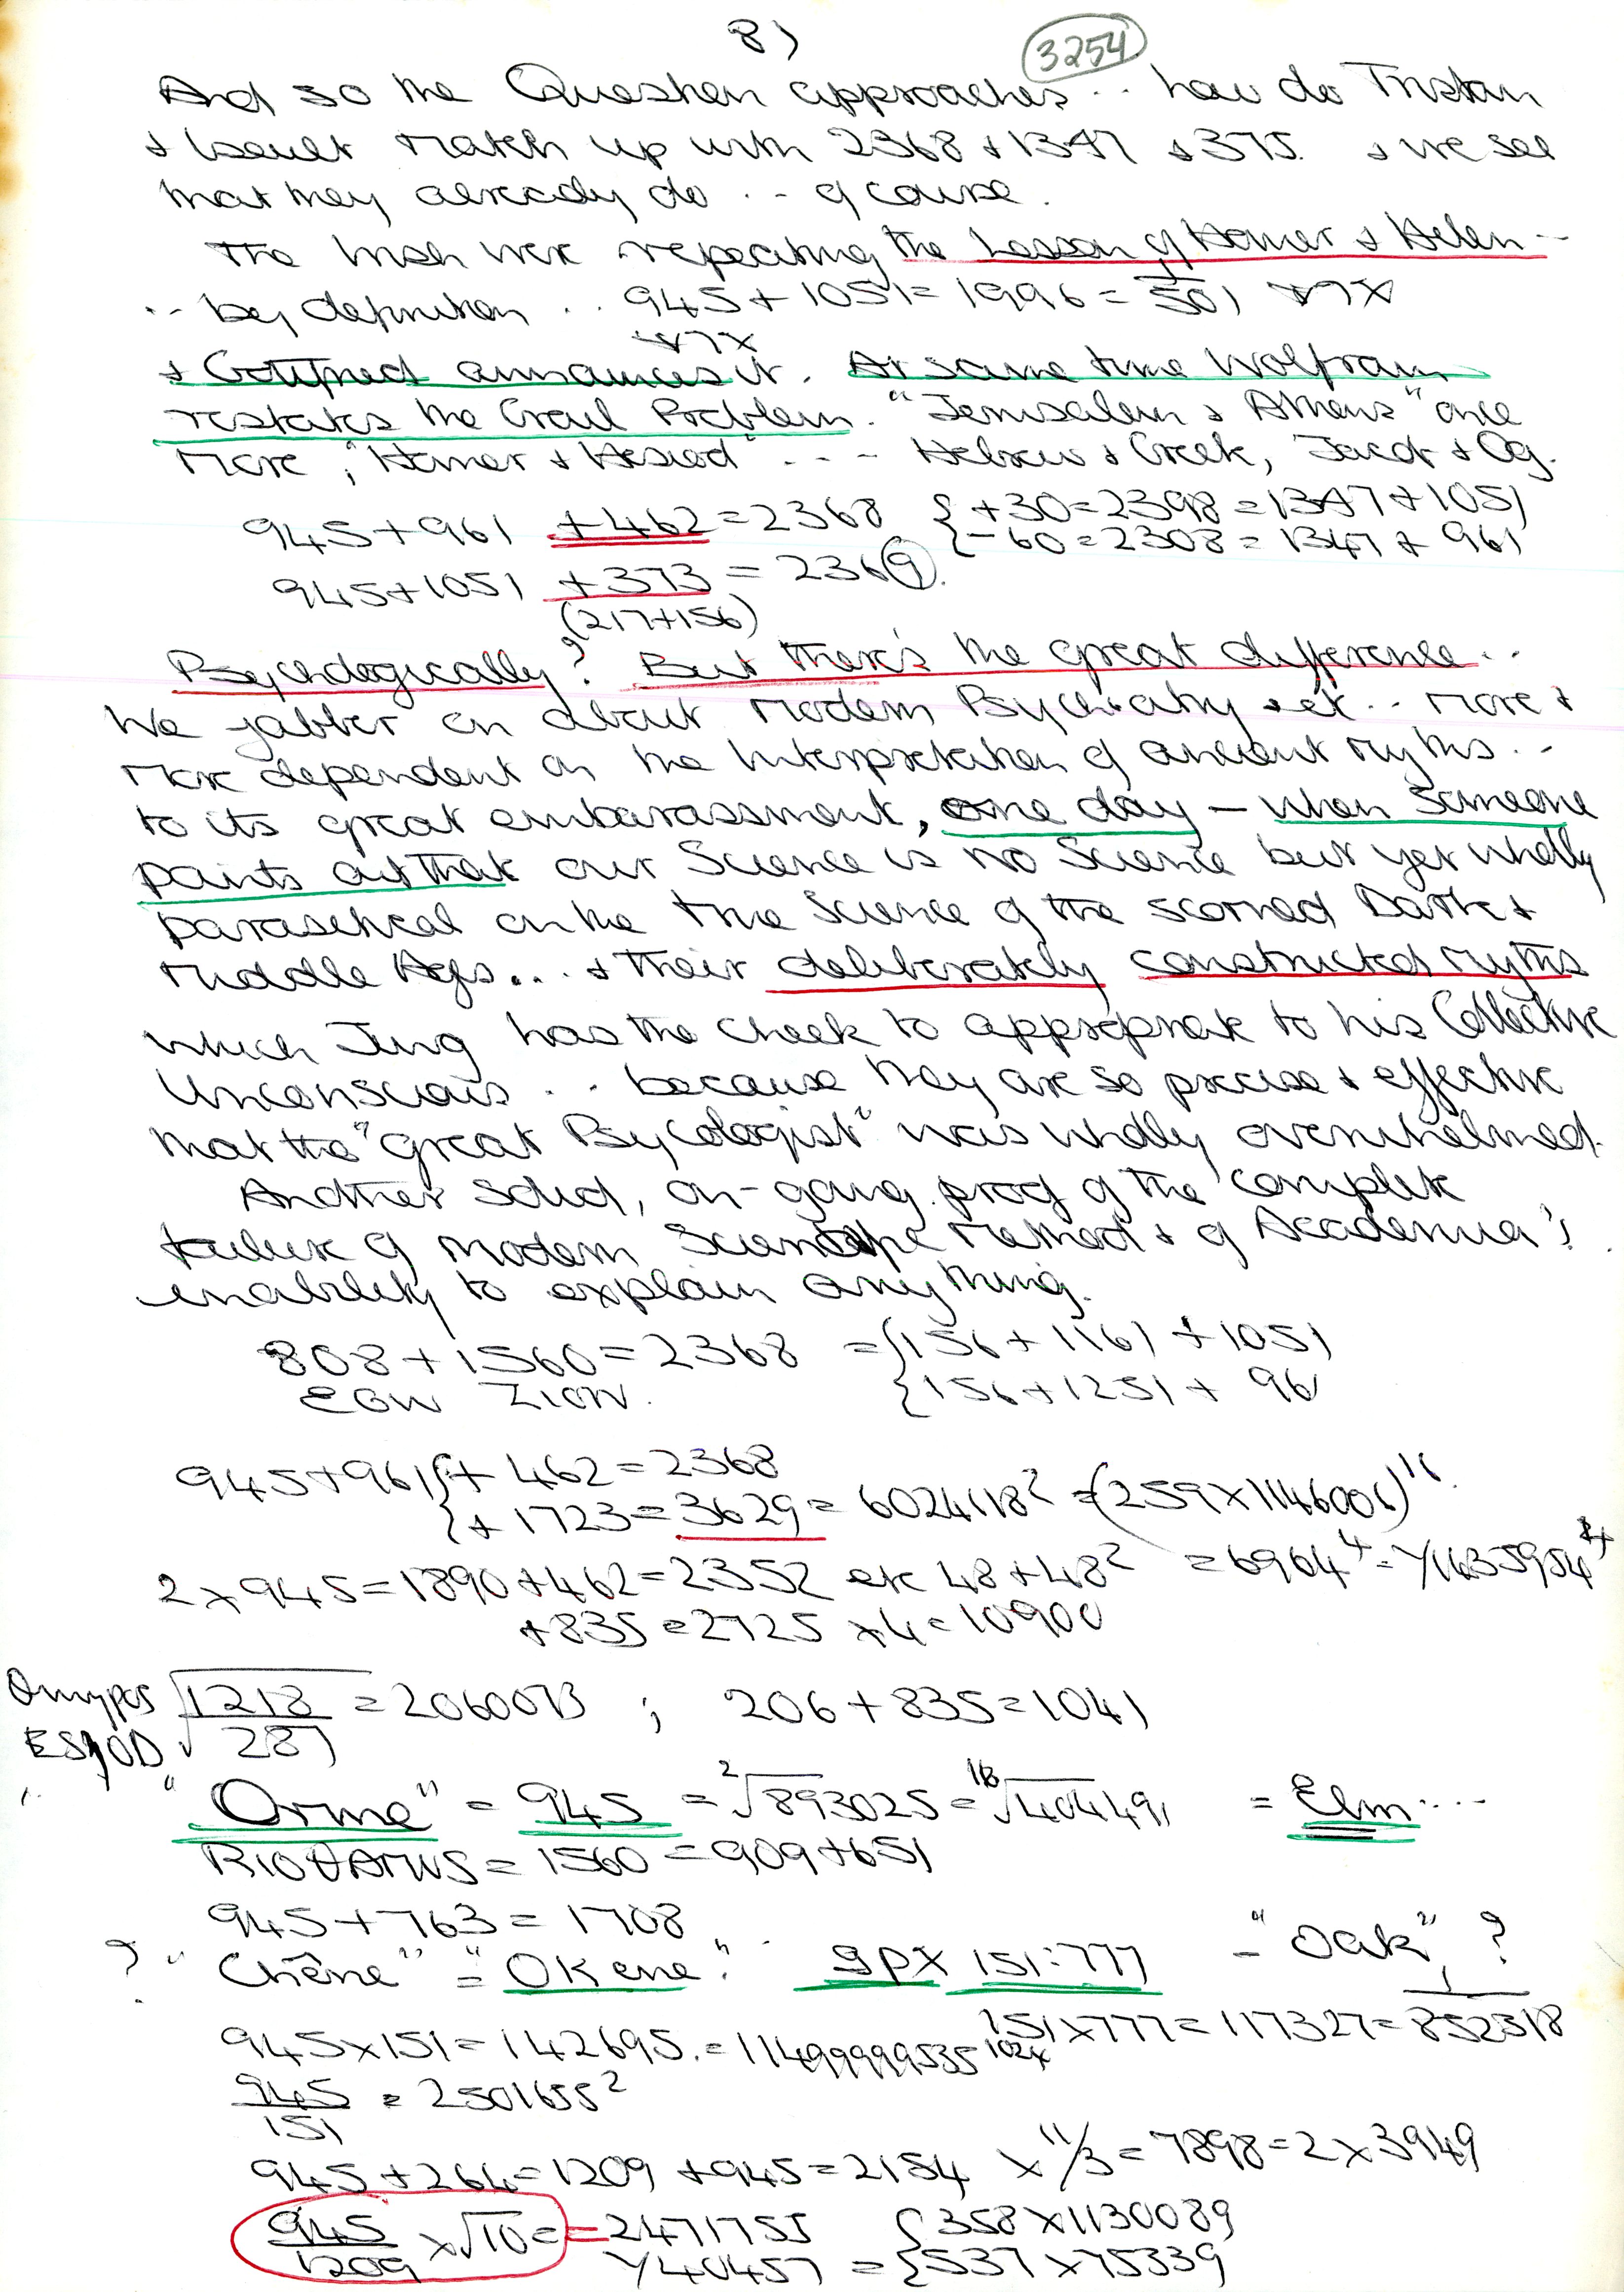 8)
3254
And so the Question approaches .. how do Tristan
& Iseult match up with 2368 + 1347 & 375. & we see
that they already do .. of course.
The Irish were repeating the Lesson of Homer & Helen ..
.. by definition .. 945 + 1051 = 1996 = 1/501
& Gottfried announces it. At same time Wolfram
restates the Grail Problem. "Jerusalem & Athens" once
more, "Homer & Hesiod" . - - Hebrew & Greek, Jacob & Og.
945 + 961 + 462 = 2368 { + 30 = 2398 = 1347 + 1051
{ - 60 = 2308 = 1347 + 961
945 + 1051 + 373 = 2369.
(217 + 156)
Psychologically? But there's the great difference ..
We jabber on about Modern Psychiatry & etc .. more &
more dependent on the Interpretation of ancient myths ..
to its great embarassment, one day — when someone
points out that our Science is no Science but yet wholly
parasitical on the true Science of the scorned Dark &
Middle Ages... & their deliberately constructed myths
which Jung has the cheek to appropriate to his Collective
Unconscious .. because they are so precise & effective
that the "great Psycologist" was wholly overwhelmed.
Another solid, on-going proof of the complete
failure of modern Scientific Method & of Academia's
inability to explain anything.
808 + 1560 = 2368 = { 156 + 1161 + 1051
{ 156 + 1251 + 961
EGW ZION.
945 + 961 { + 462 = 2368
{ + 1723 = 3629 = 6024118² = (259 x 1146006)"
2 x 945 = 1890 + 462 = 2352 etc 48 + 48² = 6964⁴ = 1/1435954⁴
+ 835 = 2725 x 4 = 10900
√1218/287 = 2060073 ; 206 + 835 = 1041
ESIOD
"Orme" = 945 = ²√893025 = ¹⁸√404491 = Elm ....
RIOTHAMUS = 1560 = 909 + 651
945 + 763 = 1708
? "Chêne" = "OKene". 151:777 = "Oak"?
945 x 151 = 142695. = 11499999535¹⁰²⁴ 151 x 777 = 117327 = 1/852318
945/151 = 2501655²
945 + 264 = 1209 + 945 = 2154 x 11/3 = 7898 = 2 x 3949
945/1209 x √10 = = 2471755 { 358 x 1130089
1/40457 = { 537 x 75339